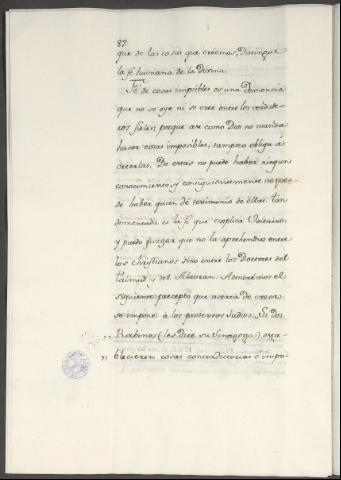 87
que de las cosas que creemos. Distingue
la fe humana de la Divina.
Fé de cosas imposibles es una demencia
que no se oye ni se cree entre los verdade-
ros fieles; porque asi como Dios no manda
hacer cosas imposibles, tampoco obliga á
creerlas. De estas no puede haber ningun
conocimiento, y consiguientemente no pue-
de haber quien dé testimonio de ellas. Tan
dementada es la fe que explica Voltaire;
y puedo juzgar que no la aprehendio entre
los Christianos sino entre los Doctores del
talmud, y del Alcoran. Admiremos el
siguiente precepto que acerca de creer
se impone á los protervos Judios. Si dos
,, Rabinos (les dice su Sinagoga) esta-
,, blecieren cosas contradictorias é impo-